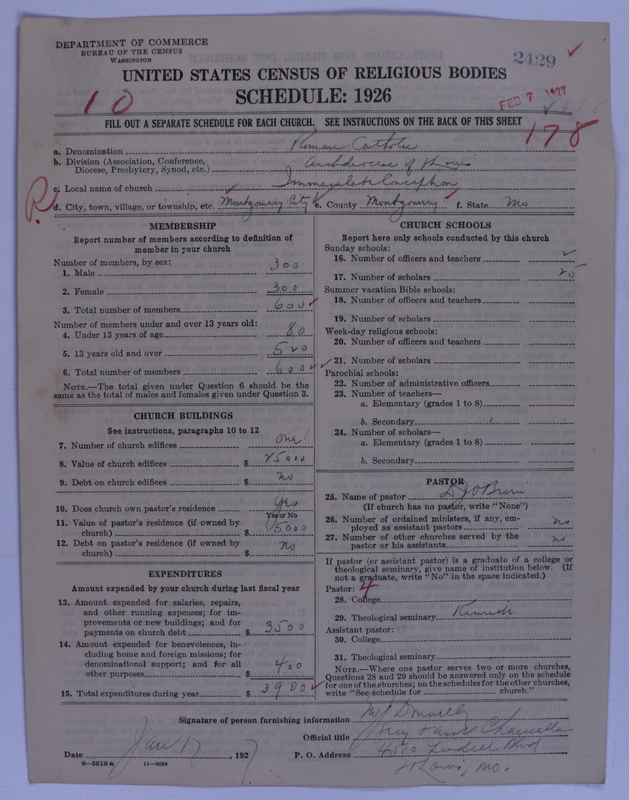 DEPARTMENT OF COMMERCE
BUREAU OF THE CENSUS
WASHINGTON
2429
UNITED STATES CENSUS OF RELIGIOUS BODIES
SCHEDULE: 1926
10
FEB 7 1927
178
FILL OUT A SEPARATE SCHEDULE FOR EACH CHURCH. SEE INSTRUCTIONS ON THE BACK OF THIS SHEET
178
a. Denomination Roman Catholic
b. Division (Association, Conference,
Diocese, Presbytery, Synod, etc.) Archdiocese of St Louis
R
c. Local name of church Immaculate Conception
d. City, town, village, or township, etc. Montgomery City e. County Montgomery f. State Mo
MEMBERSHIP
Report number of members according to definition of
member in your church
Number of members, by sex:
1. Male 300
2. Female 300
3. Total number of members 600
Number of members under and over 13 years old:
4. Under 13 years of age 80
5. 13 years old and over 520
6. Total number of members 600
NOTE.—The total given under Question 6 should be the
same as the total of males and females given under Question 3.
CHURCH BUILDINGS
See instructions, paragraphs 10 to 12
7. Number of church edifices one
8. Value of church edifices $ 25000
9. Debt on church edifices $ no
10. Does church own pastor's residence yes
Yes or No
11. Value of pastor's residence (if owned by
church) $ 5000
12. Debt on pastor's residence (if owned by
church) $ no
EXPENDITURES
Amount expended by your church during last fiscal year
13. Amount expended for salaries, repairs,
and other running expenses; for im-
provements or new buildings; and for
payments on church debt $ 3500
14. Amount expended for benevolences, in-
cluding home and foreign missions; for
denominational support; and for all
other purposes $ 400
15. Total expenditures during year $ 3900
CHURCH SCHOOLS
Report here only schools conducted by this church
Sunday schools:
16. Number of officers and teachers
17. Number of scholars
Summer vacation Bible schools:
18. Number of officers and teachers
19. Number of scholars
Week-day religious schools:
20. Number of officers and teachers
21. Number of scholars
Parochial schools:
22. Number of administrative officers
23. Number of teachers—
a. Elementary (grades 1 to 8)
b. Secondary
24. Number of scholars—
a. Elementary (grades 1 to 8)
b. Secondary
PASTOR
25. Name of pastor D J O'Brien
(If church has no pastor, write "None")
26. Number of ordained ministers, if any, em-
ployed as assistant pastors no
27. Number of other churches served by the
pastor or his assistants no
If pastor (or assistant pastor) is a graduate of a college or
theological seminary, give name of institution below. (If
not a graduate, write "No" in the space indicated.)
Pastor: 4
28. College
29. Theological seminary Kenrick
Assistant pastor:
30. College
31. Theological seminary
NOTE.—Where one pastor serves two or more churches,
Questions 28 and 29 should be answered only on the schedule
for one of the churches; on the schedules for the other churches,
write "See schedule for church."
Signature of person furnishing information Donnelly
Official title
Date Jan 17 1927 P. O. Address 4500 Lindell Blvd
8—5518a 11—9234 St Louis, Mo.